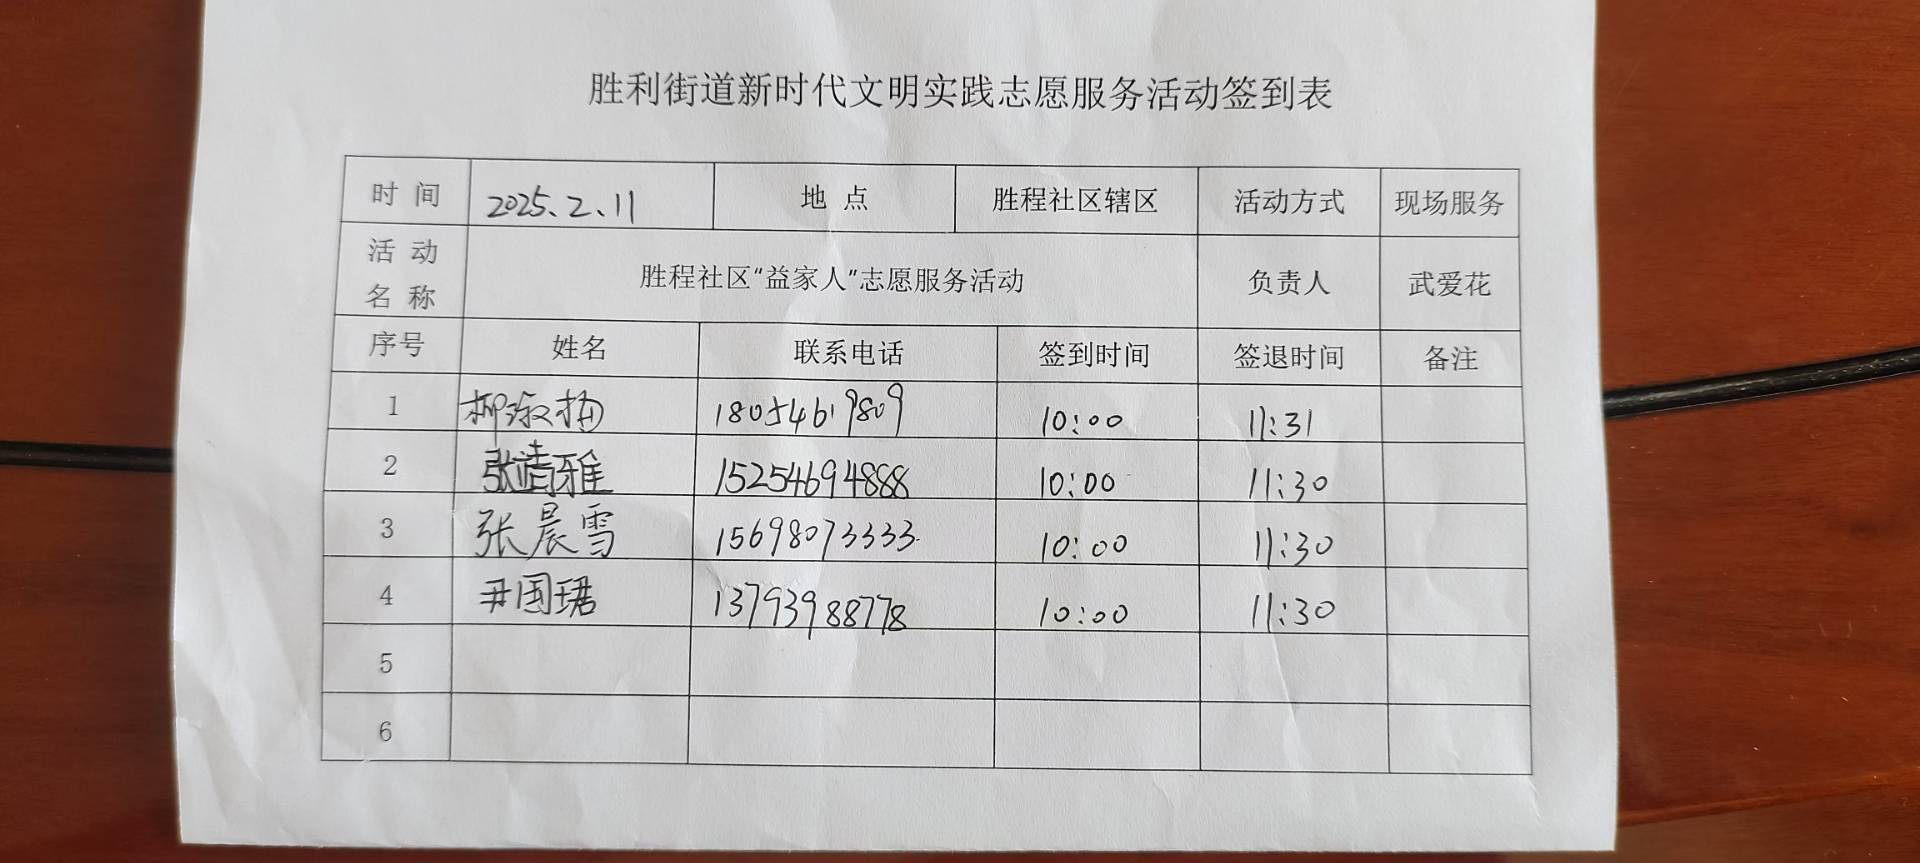 胜利街道新时代文明实践志愿服务活动签到表
时 间 2025.2.11 地 点 胜程社区辖区 活动方式 现场服务
活 动 名 称 胜程社区“益家人”志愿服务活动 负责人 武爱花
序号 姓名 联系电话 签到时间 签退时间 备注
1 柳淑梅 18054619809 10:00 11:31
2 张靖雅 15254694888 10:00 11:30
3 张晨雪 15698073333 10:00 11:30
4 尹国珺 13793988778 10:00 11:30
5
6